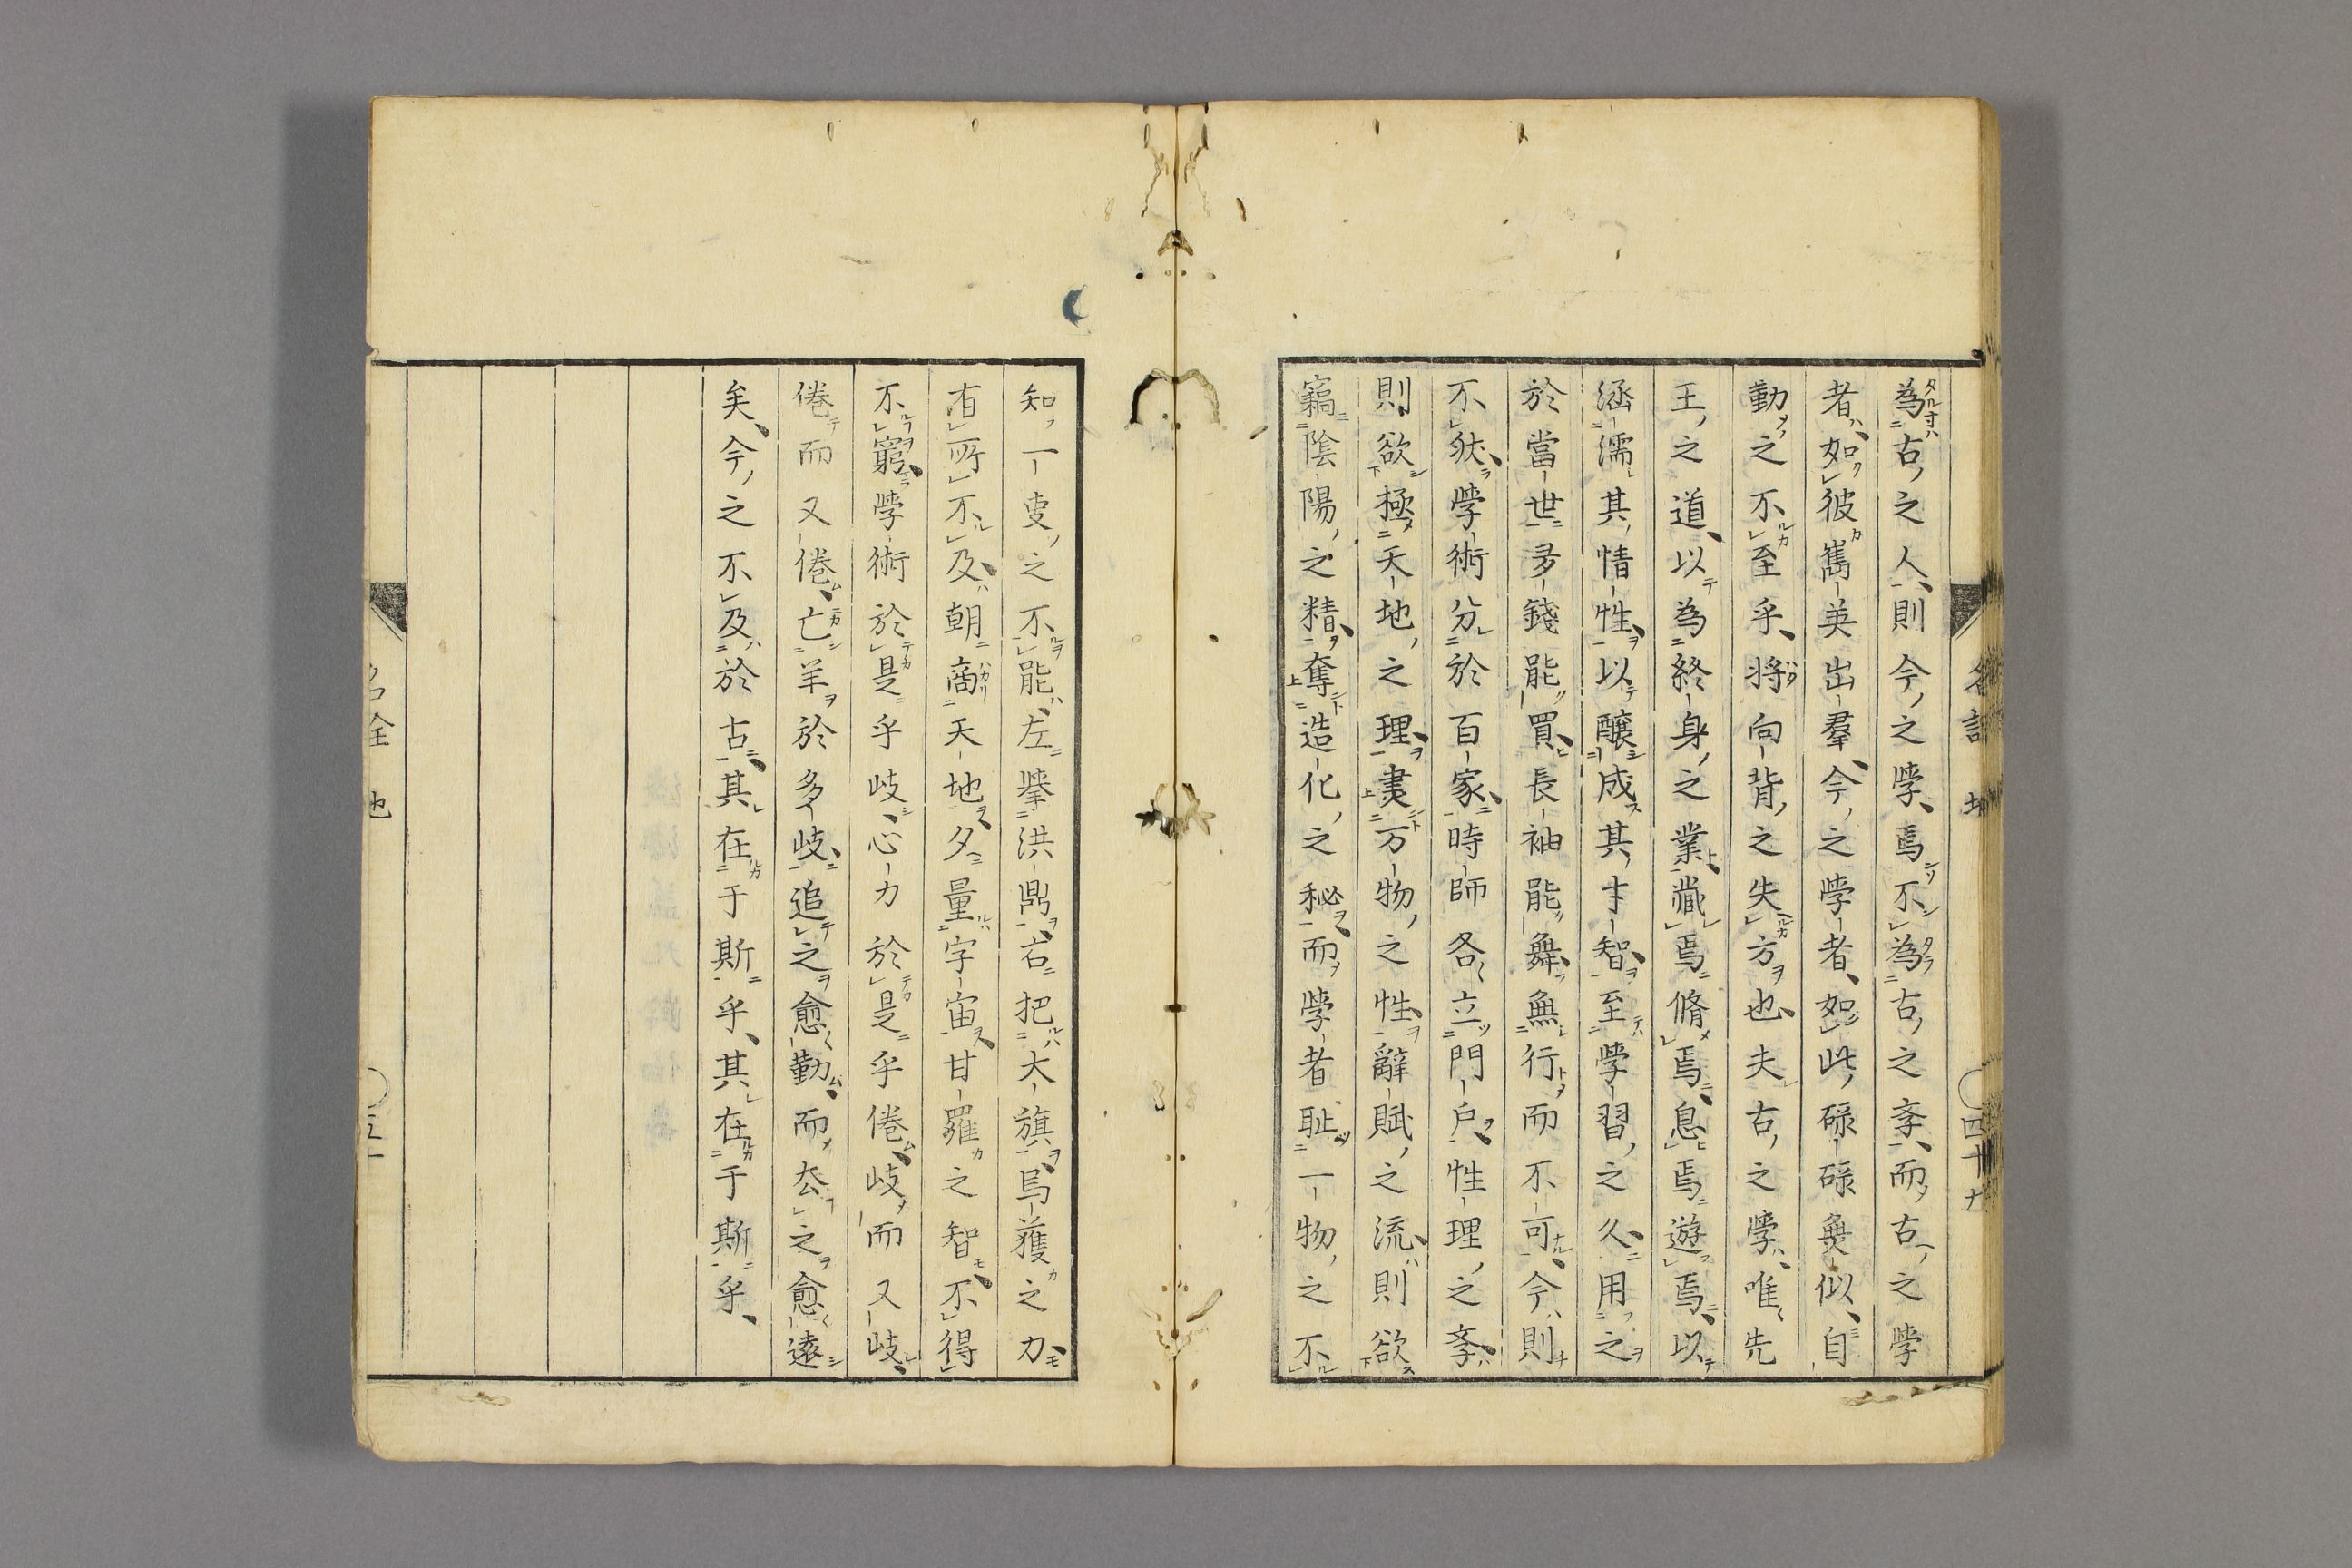 為古之人則今之學焉不為古之㕝而古之學
者如彼雋英出羣今之學者如此碌碌無似自
勤之不至乎將向背之失方也夫古之學唯先
王之道以為終身之業藏焉脩焉息焉遊焉以
涵濡其情性以釀成其才智至學習之久用之
於當世多錢能買長袖能舞無行而不可今則
不然學術分於百家時師各立門戶性理之㕝
則欲極天地之理盡万物之性辭賦之流則欲
竊陰陽之精奪造化之秘而學者恥一物之不
知一叓之不能左擧洪鼎右把大旗烏獲之力
有所不及朝啇天地夕量宇宙甘羅之智不得
不窮學術於是乎岐心力於是乎倦岐而又岐
倦而又倦亡羊於多岐追之愈勤而去之愈遠
矣今之不及於古其在于斯乎其在于斯乎
地
四十九